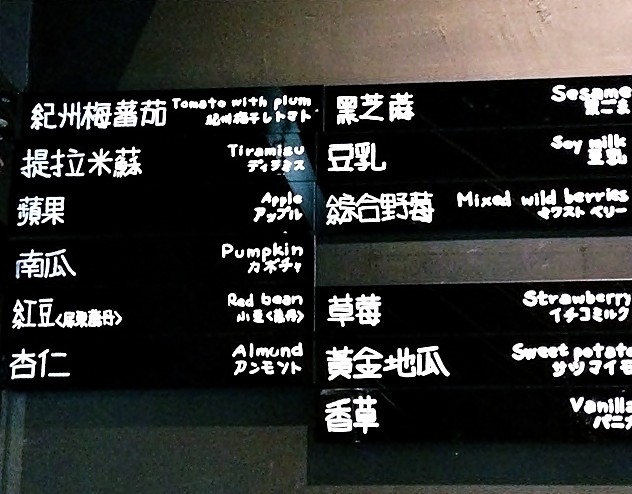 紀州梅蕃茄 Tomato with plum
紀州梅干しトマト
提拉米蘇 Tiramisu
ティラミス
蘋果 Apple
アップル
南瓜 Pumpkin
カボチャ
紅豆<屏東萬丹> Red bean
小豆<萬丹>
杏仁 Almond
アーモンド
黑芝麻 Sesame
黒ごま
豆乳 Soy milk
豆乳
綜合野莓 Mixed wild berries
ミックスト ベリー
草莓 Strawberry
イチゴミルク
黃金地瓜 Sweet potato
サツマイモ
香草 Vanilla
バニラ